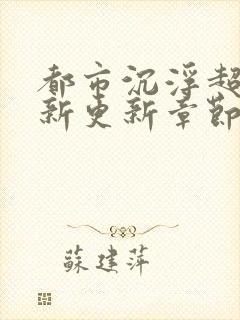 都市沉浮超
新更新章節
蘇建萍